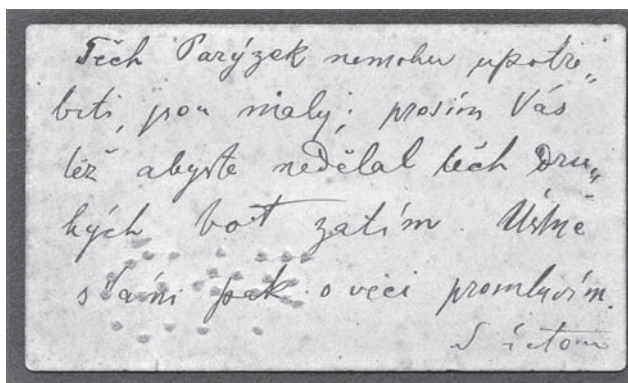 Těch Parýzek nemohu upotře„
biti, jsou malý; prosím Vás
též abyste nedělal těch dru„
hých bot zatím. Ústně
s Vámi pak o věci promluvím.
S úctou